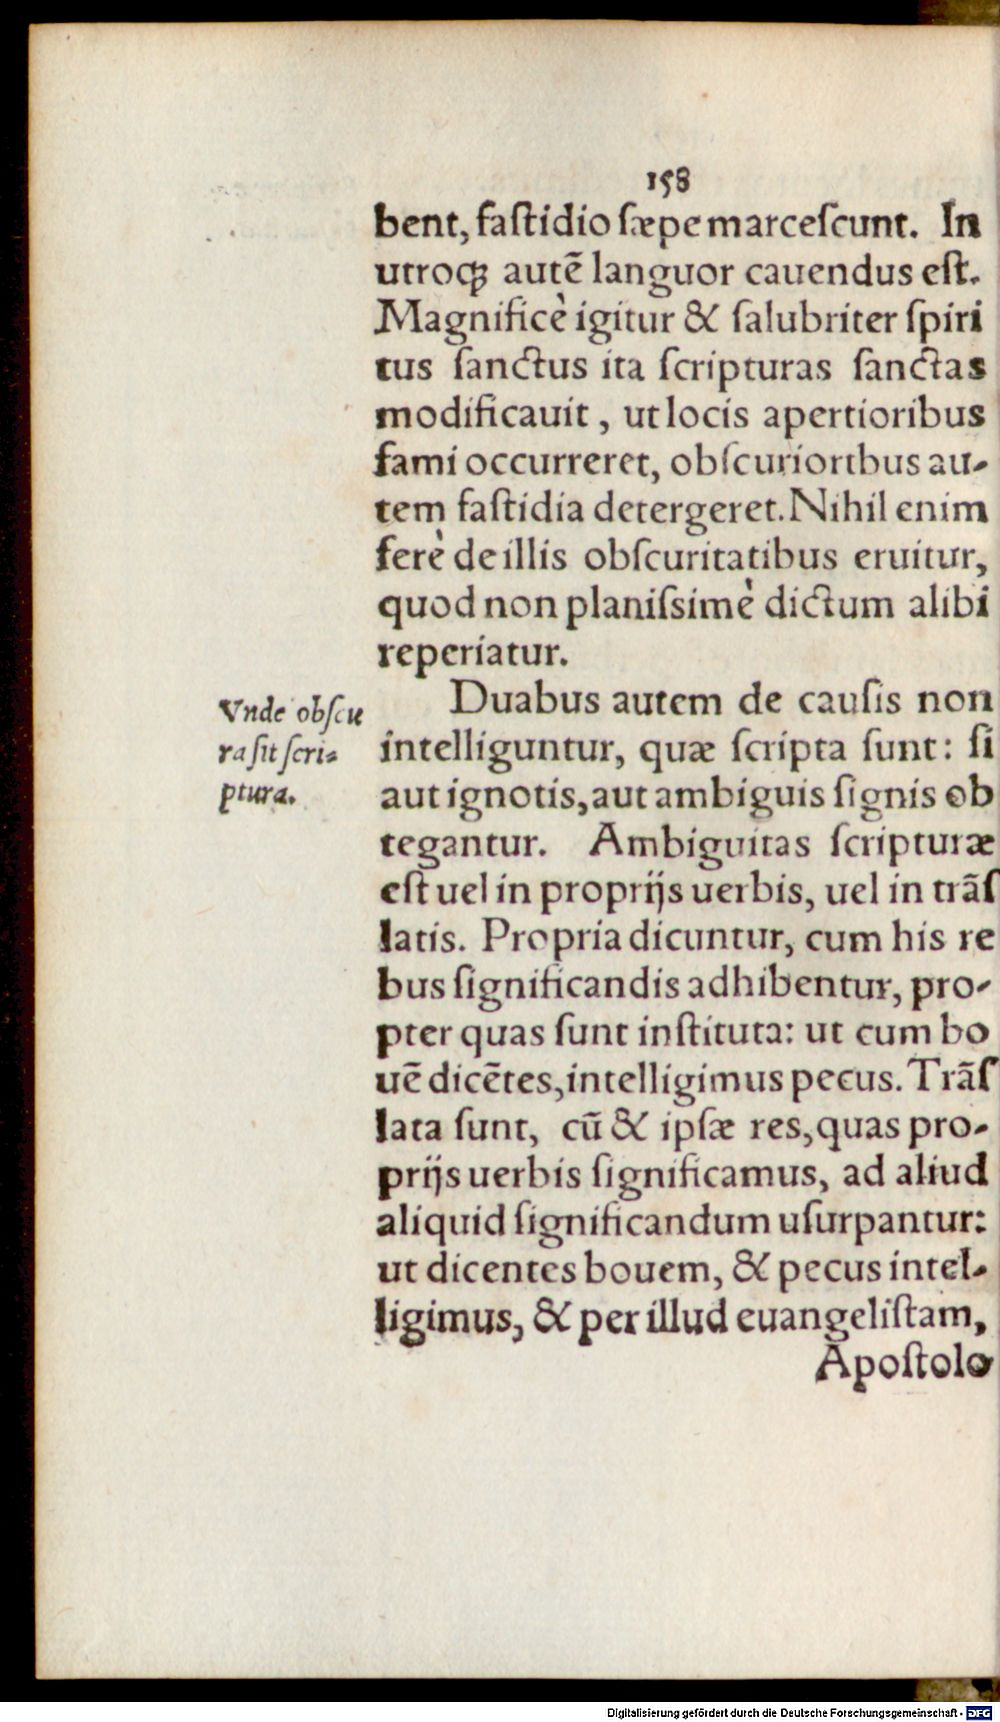 158
bent, faſtidio ſæpe marceſcunt. In
utroqꝫ autē languor cauendus eſt.
Magnificè igitur & ſalubriter ſpiri
tus ſanctus ita ſcripturas ſanctas
modificauit, ut locis apertioribus
fami occurreret, obſcurioribus au-
tem faſtidia detergeret. Nihil enim
ferè de illis obſcuritatibus eruitur,
quod non planiſsimè dictum alibi
reperiatur.
Vnde obſcu
ra ſit ſcri-
ptura.
Duabus autem de cauſis non
intelliguntur, quæ ſcripta ſunt: ſi
aut ignotis, aut ambiguis ſignis ob
tegantur. Ambiguitas ſcripturæ
eſt uel in proprijs uerbis, uel in trāſ
latis. Propria dicuntur, cum his re
bus ſignificandis adhibentur, pro-
pter quas ſunt inſtituta: ut cum bo
uē dicētes, intelligimus pecus. Trāſ
lata ſunt, cū & ipſæ res, quas pro-
prijs uerbis ſignificamus, ad aliud
aliquid ſignificandum uſurpantur:
ut dicentes bouem, & pecus intel-
ligimus, & per illud euangeliſtam,
Apoſtolo
Digitalisierung gefördert durch die Deutsche Forschungsgemeinschaft - DFG